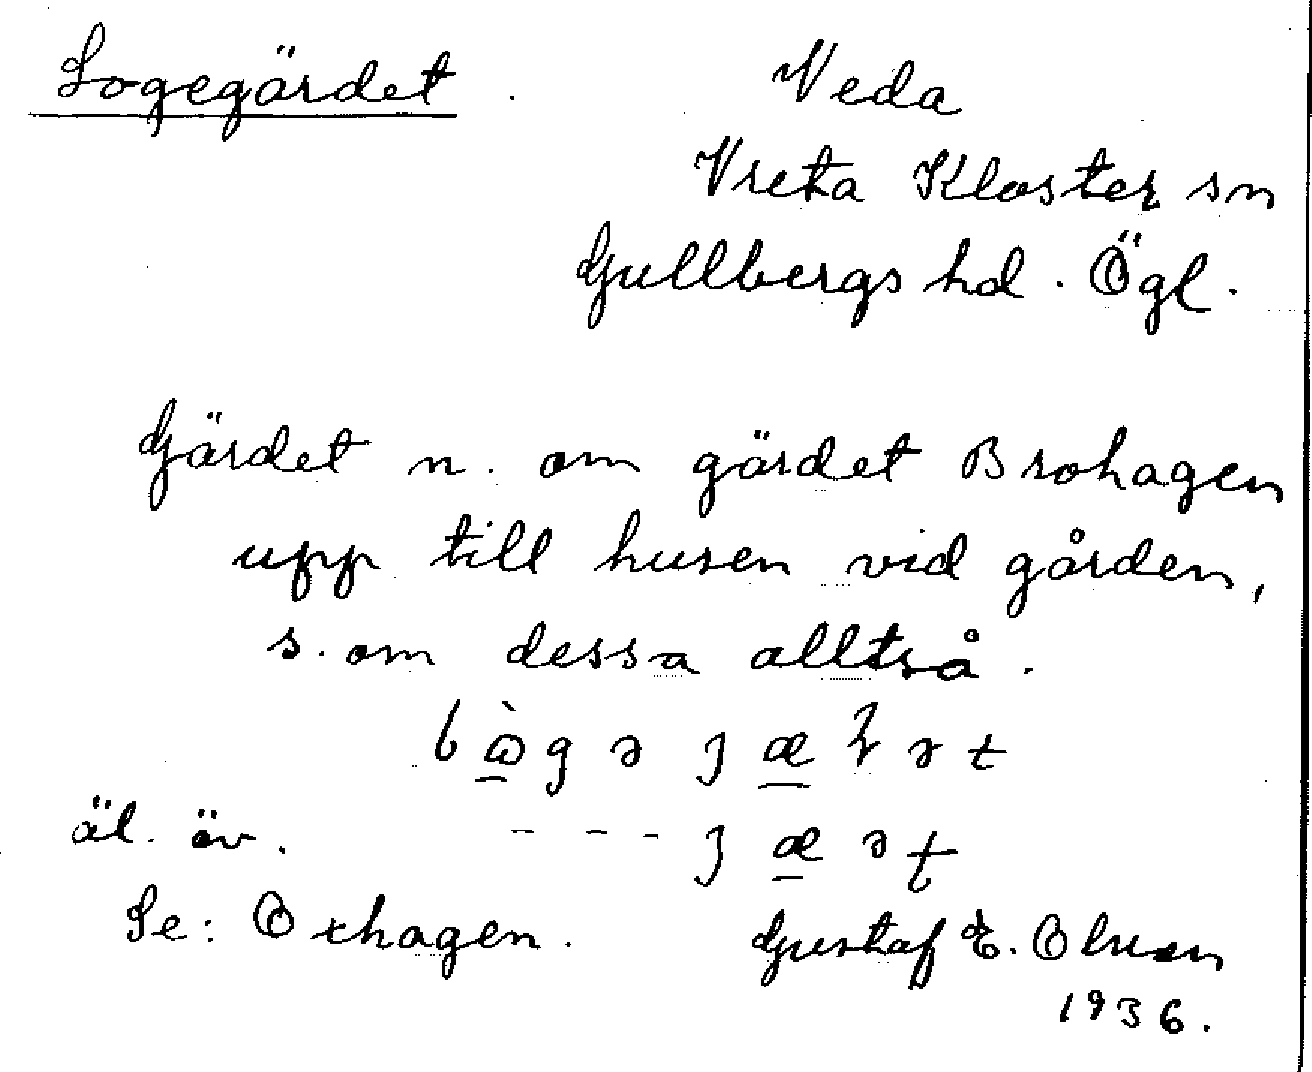 Logegärdet. Veda
Vreta Kloster sn
Gullbergs hd. Ögl.
Gärdet n. om gärdet Brohagen
upp till husen vid gården,
s. om dessa alltså.
äl. äv.
Se: Oxhagen. Gustaf E. Olsson
1936.